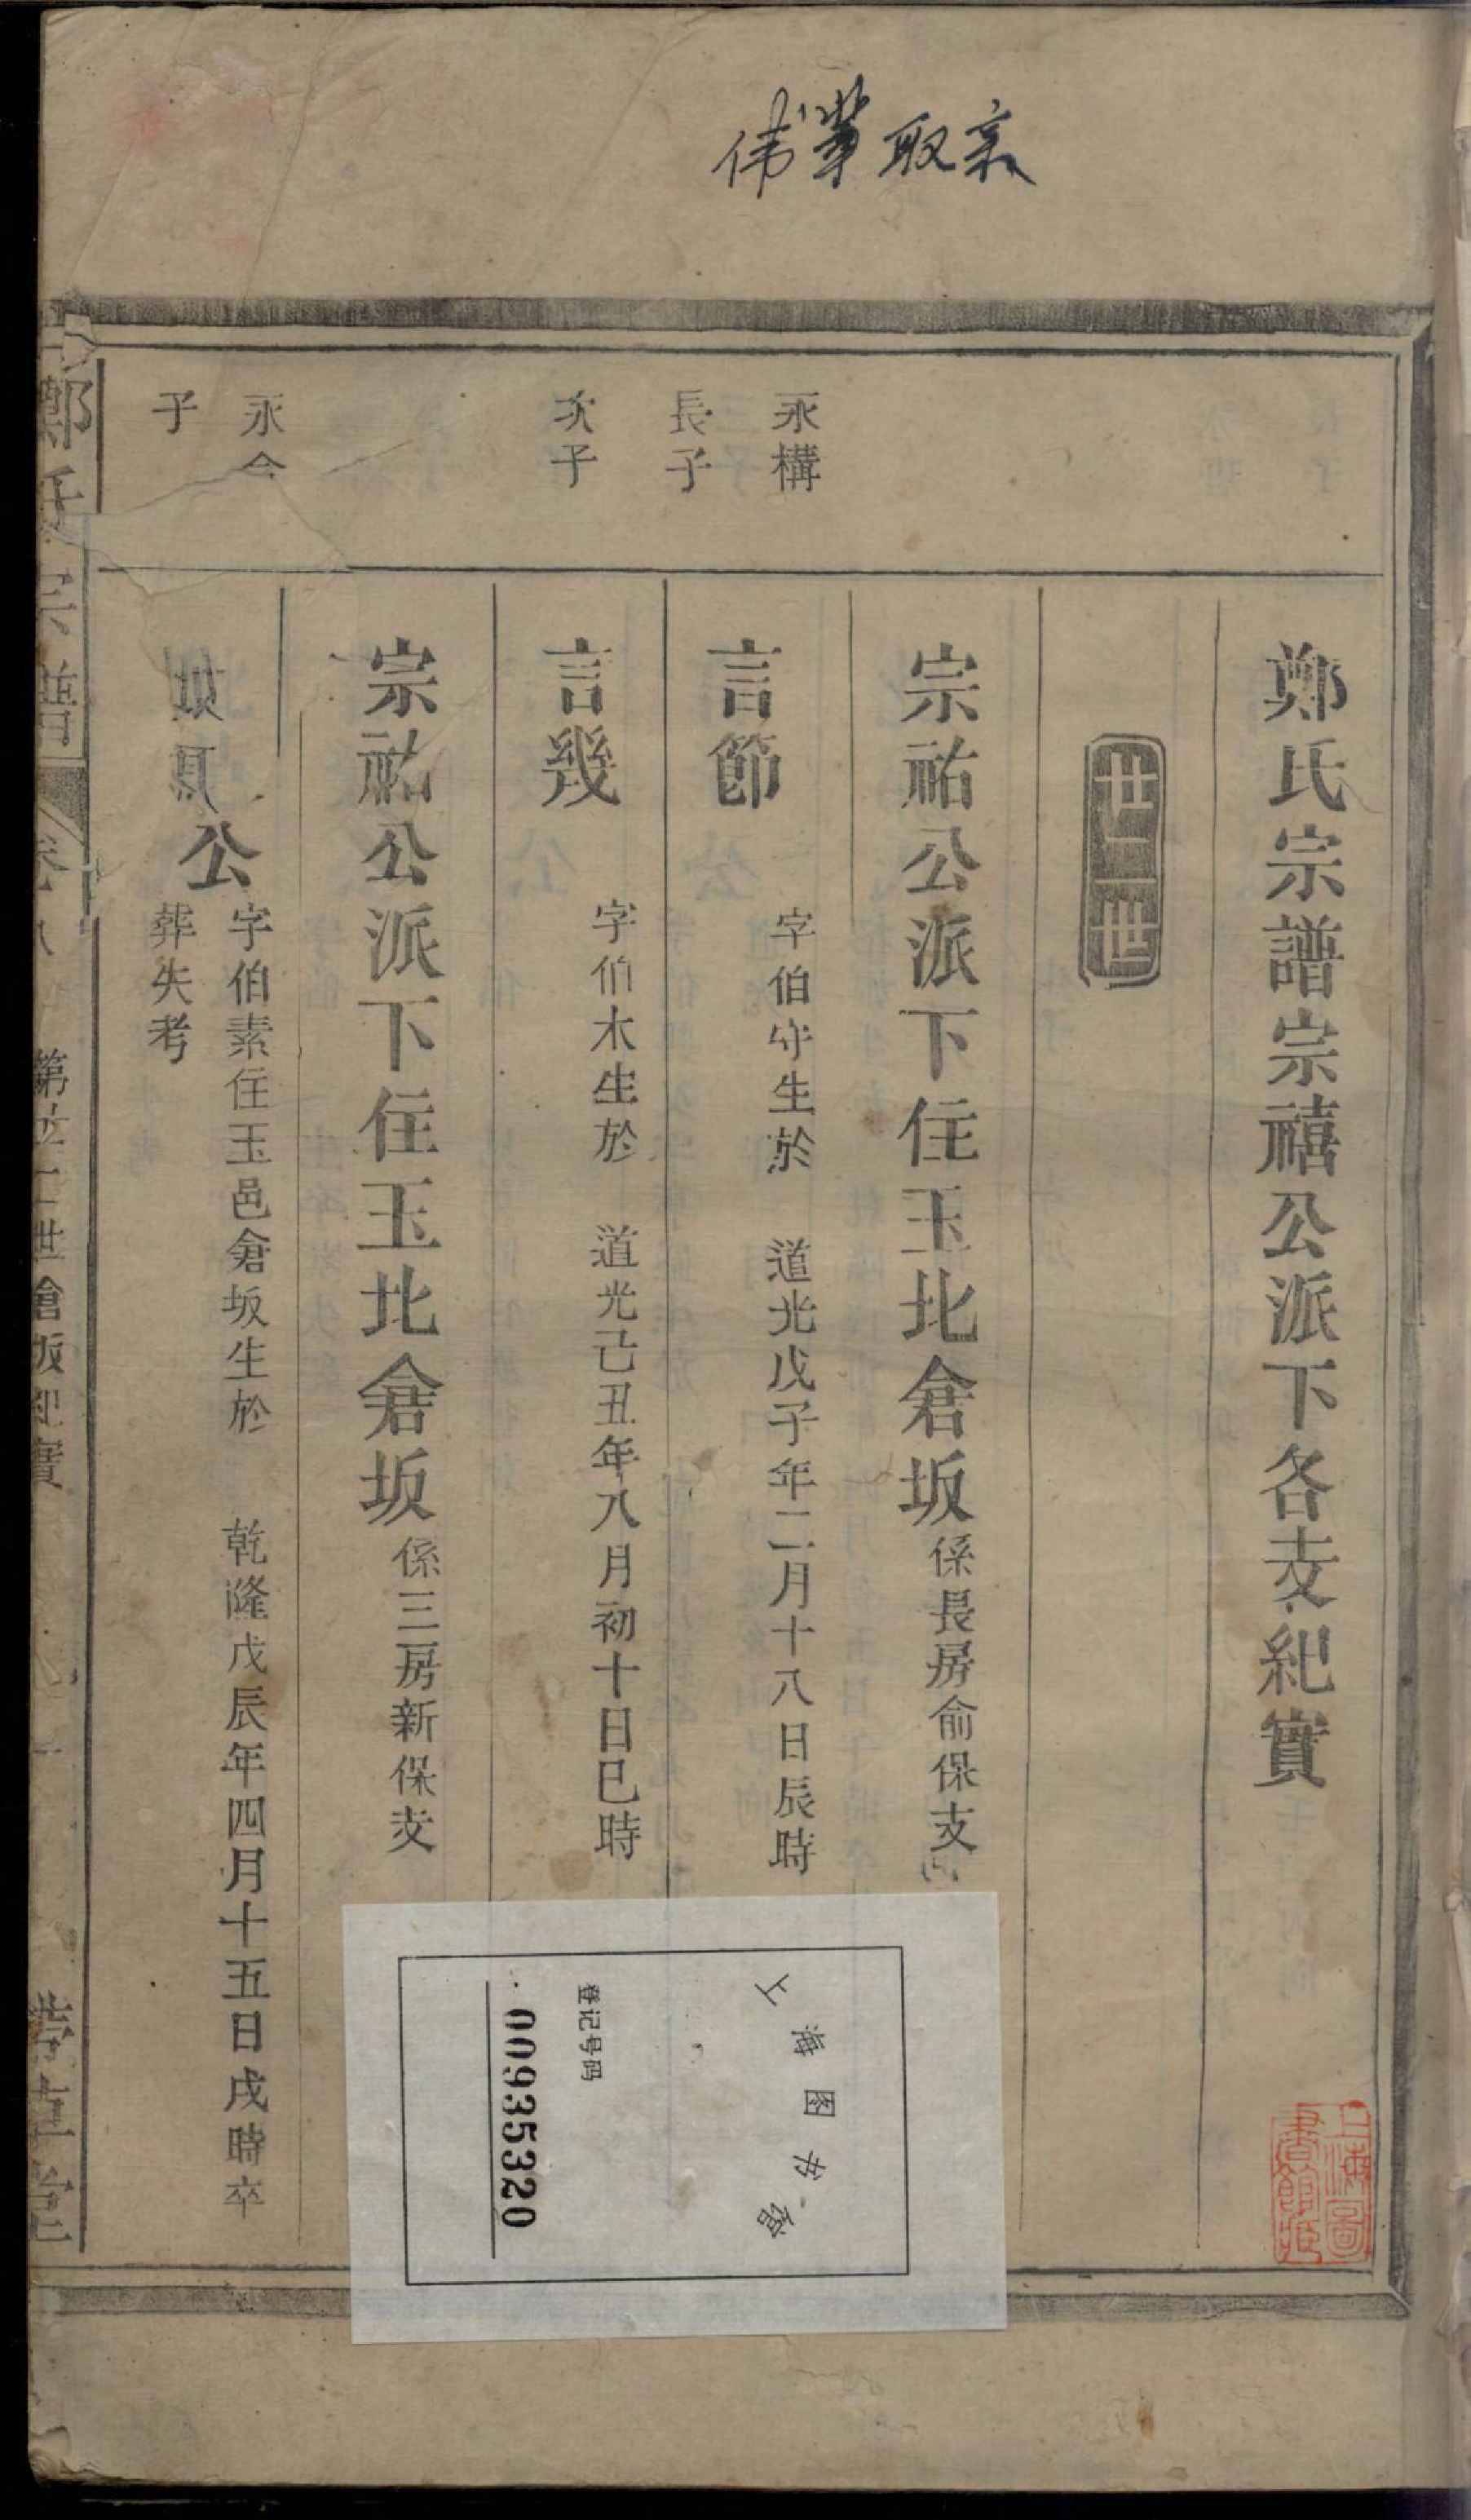 鄭氏宗譜宗禧公派下各支紀實
宗祐公派下住玉北倉坂係長房俞保支
永構
長子
言節 字伯守生於 道光戊子年二月十八日辰時
次子
言幾 字伯木生於 道光己丑年八月初十日巳時
宗祐公派下住玉北倉坂係三房新保支
永
子
公 字伯素住玉邑倉坂生於 乾隆戊辰年四月十五日戌時卒
葬失考
鄭氏宗譜
世倉坂紀實
上海图书馆
登记号码
00935320
上海圖
書館藏